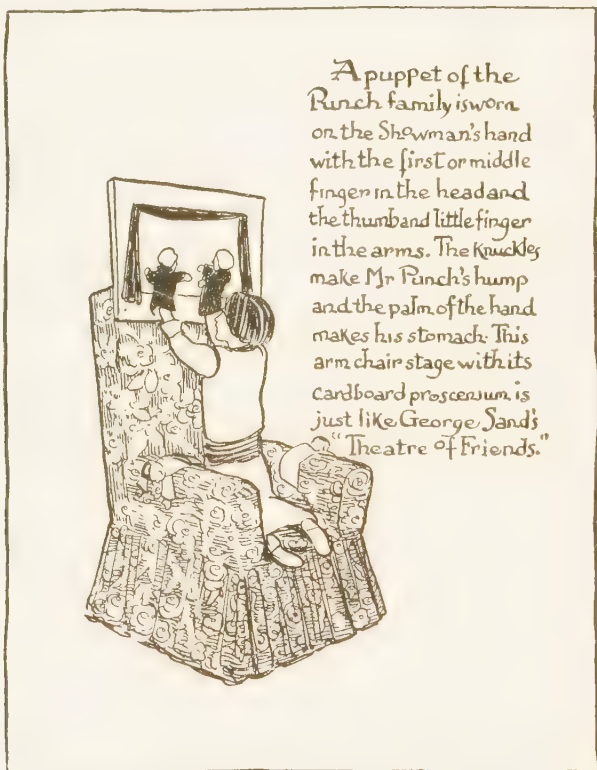 A puppet of the
Punch family is worn
on the Showman's hand
with the first or middle
finger in the head and
the thumb and little finger
in the arms. The knuckles
make Mr Punch's hump
and the palm of the hand
makes his stomach. This
arm chair stage with its
cardboard proscenium is
just like George Sand's
"Theatre of Friends."